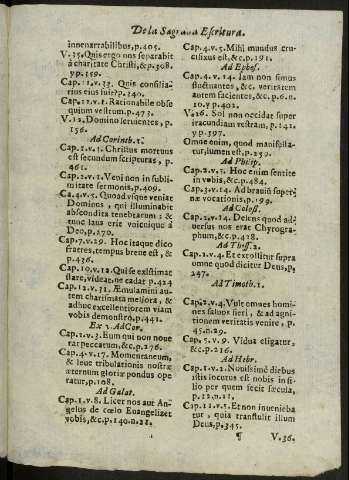 De la Sagrada Escritura.
innenarrabilibus, p.405.
V.35. Quis ergo nos separabit
à charitate Christi, &c p.308.
y p.359.
Cap.11.v.33. Quis consilia-
rius eius fuit? p.140.
Cap.12.v.1. Rationabile obse
quium vestrum. p.473.
V.12. Domino seruientes, p.
156.
Ad Corinth.1.
Cap.1.v.3. Christus mortuus
est secundum scripturas, p.
461.
Cap.2.v.1. Veni non in subli-
mitate sermonis, p.409.
Ca.4.v.5. Quoad vsque veniat
Dominus, qui illuminabit
abscondita tenebrarum; &
tunc laus erit vnicuique à
Deo, p.270.
Cap.7.v.29. Hoc itaque dico
fratres, tempus breue est, &
p.436.
Cap.10.v.12. Qui se existimat
stare, videat, ne cadat p.424
Cap.12.v.31. Æmulamini au-
tem charismata meliora, &
adhuc excellentiorem viam
vobis demonstro, p.441.
Ex 2. Ad Cor.
Cap.1.v.3. Eum qui non noue
rat peccatum, &c. p.276.
Cap.4.v.17. Momentaneum,
& leue tribulationis nostræ
æternum gloriæ pondus ope
ratur, p.108.
Ad Galat.
Cap.1.v.8. Licet nos aut An-
gelus de cœlo Euangelizet
vobis, &c. p.140.n.21.
Cap.4.v.5. Mihi mundus cru-
cifixus est, &c. p.191.
Ad Ephes.
Cap.4.v.14. Iam non simus
fluctuantes, &c. veritatem
autem facientes, &c. p.6.n.
10. y p.402.
V.26. Sol non occidat super
iracundiam vestram, p.242.
y p.397.
Omne enim, quod manifesta-
tur, lumen est, p.259.
Ad Philip.
Cap.2.v.5. Hoc enim sentite
in vobis, &c. p.484.
Cap.3.v.14. Ad brauiũ super-
næ vocationis, p.199.
Ad Coloss.
Cap.2.v.14. Delens quod ad-
versus nos erat Chyrogra-
phum, &c. p.428.
Ad Thess.2.
Cap.2.v.4. Et extollitur supra
omne quod dicitur Deus, p.
247.
Ad Timoth.1.
Cap.2.v.4. Vult omnes homi-
nes saluos fieri, & ad agni-
tionem veritatis venire, p.
45.n.29.
Cap.5.v.9. Vidua eligatur,
&c. p.216.
Ad Hebr.
Cap.1.v.2. Nouissimè diebus
istis locutus est nobis in fi-
lio per quem fecit sæcula,
p.12.n.21.
Cap.11.v.5. Et non inuenieba
tur, quia transtulit illum
Deus, p.345.
¶ V.36.